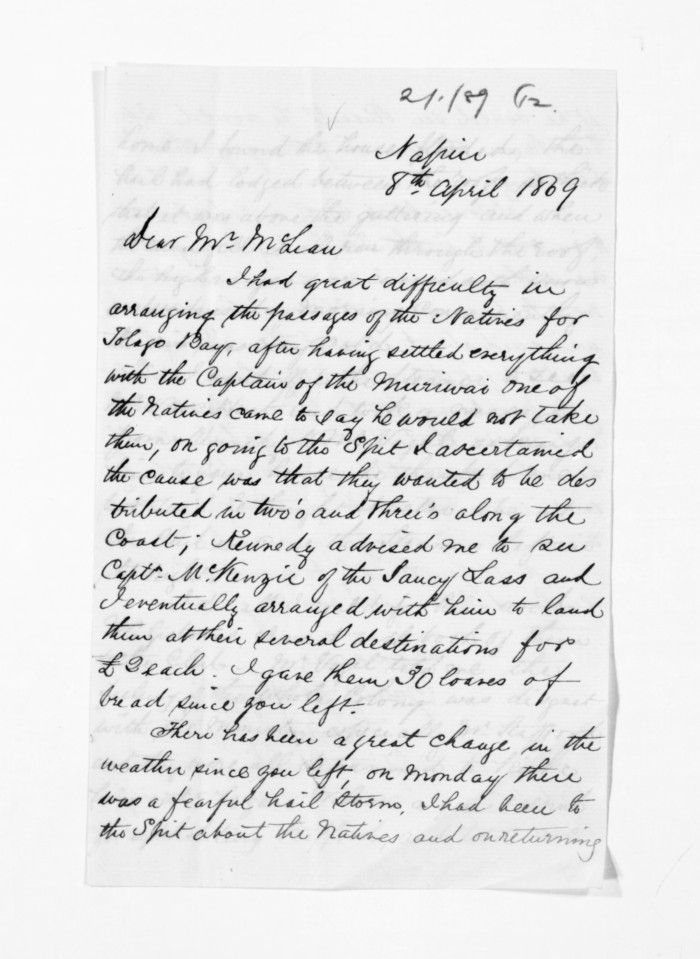 Napier
8th April 1869
Dear Mr. McLean
I had great difficulty in
arranging the passages of the Natives for
Tolago Bay, after having settled everything
with the Captain of the Muriwai one of
the Natives came to say he would not take
them, on going to the Spit I ascertained
the cause was that they wanted to be des
tributed in two's and three's along the
Coast; Kennedy advised me to see
Captn. McKenzie of the Saucy Lass and
I eventually arranged with him to land
them at their several destinations for
£2 each. I gave them 30 loaves of
bread since you left.
There has been a great change in the
weather since you left, on Monday there
was a fearful hail storm, I had been to
the Spit about the Natives and on returning